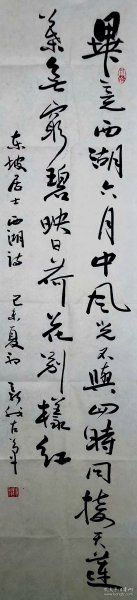 畢竟西湖六月中風光不與四時同接天蓮
葉無窮碧映日荷花別樣紅
東坡居士西湖詩
己未夏初